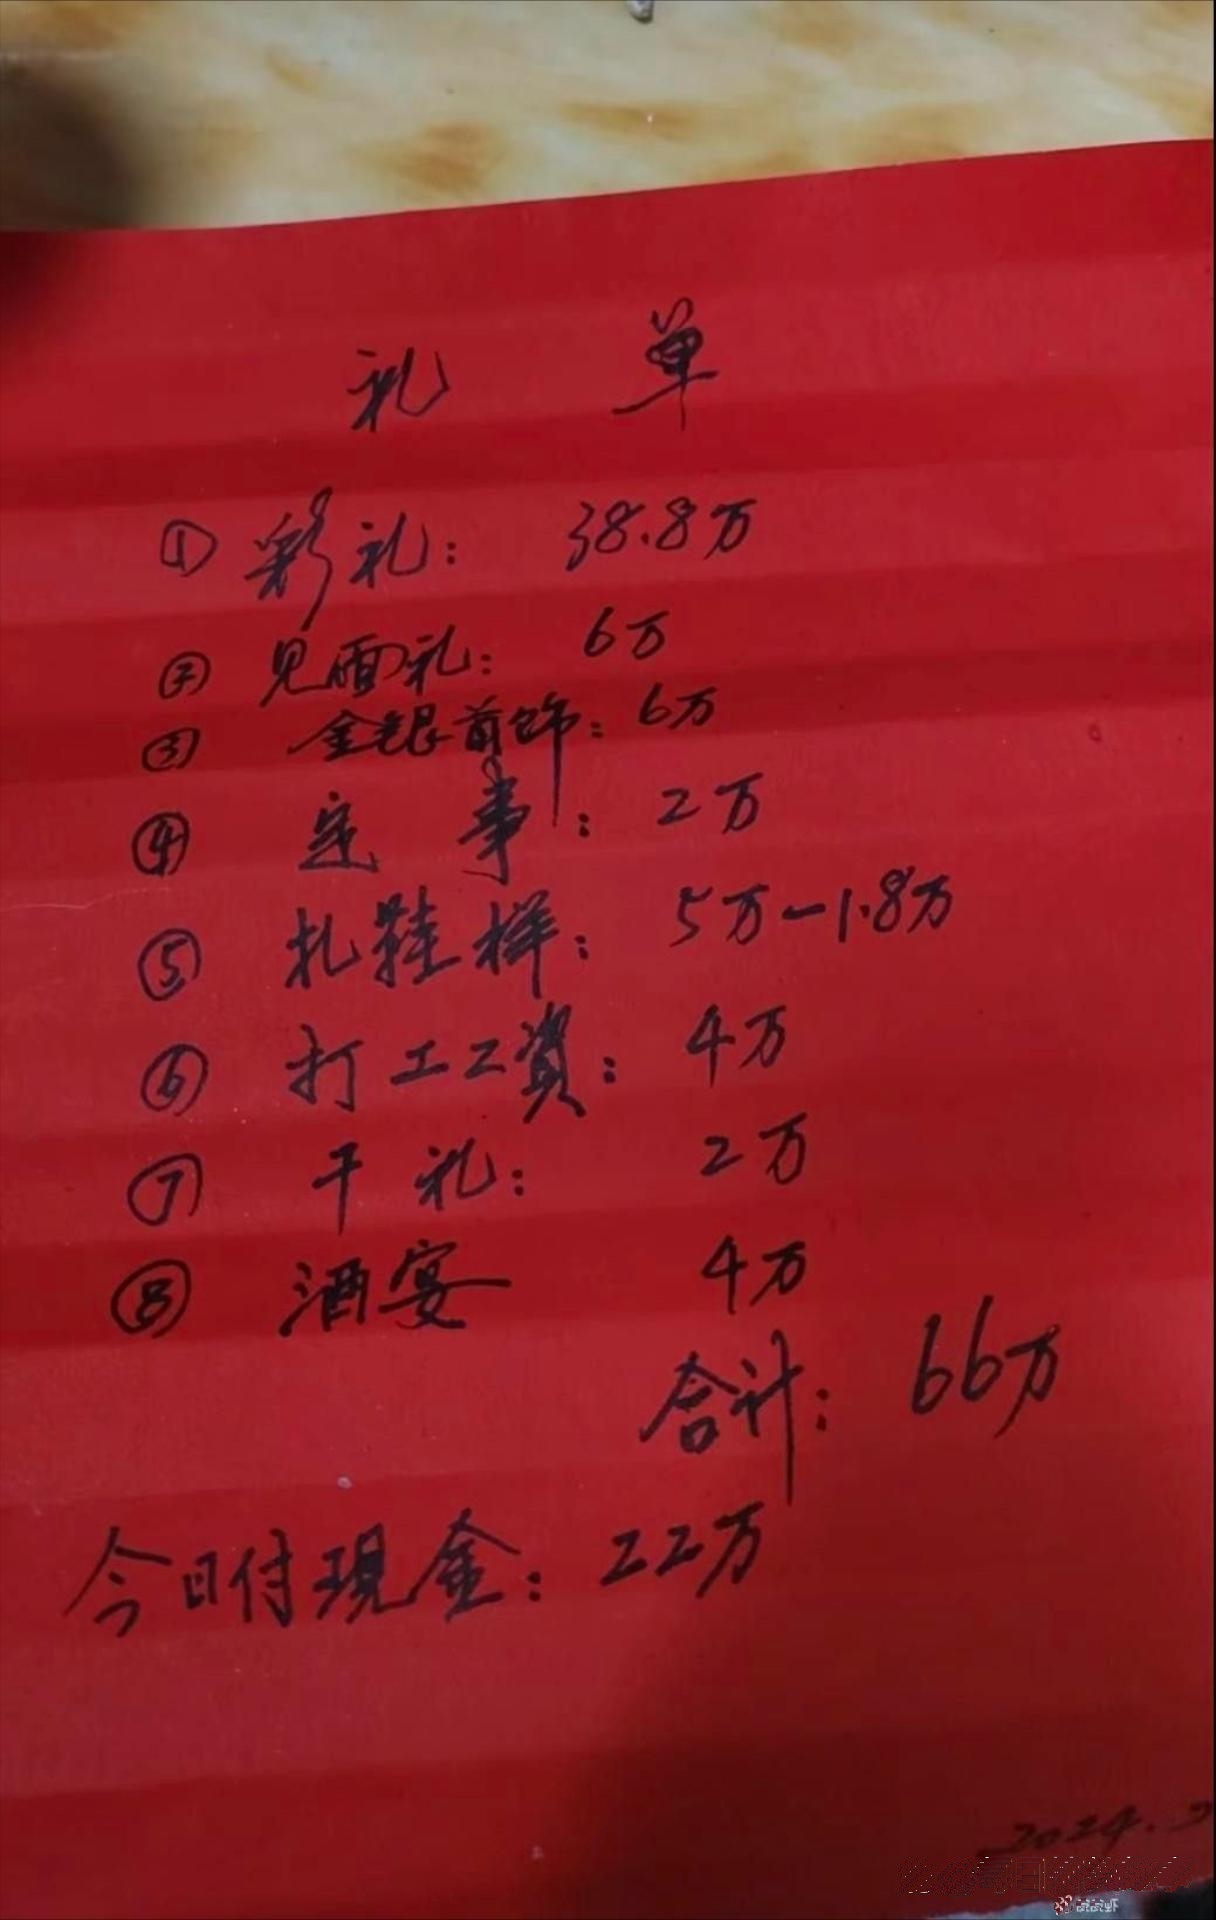 礼 单
① 彩礼： 38.8万
② 见面礼： 6万
③ 金银首饰： 6万
④ 定 事： 2万
⑤ 扎鞋样： 5万-1.8万
⑥ 打工工資： 4万
⑦ 干礼： 2万
⑧ 酒宴 4万
合计： 66万
今日付現金： 22万
2024.